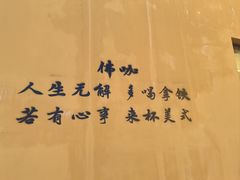 佛咖
人生无解 多喝拿铁
若有心事 来杯美式